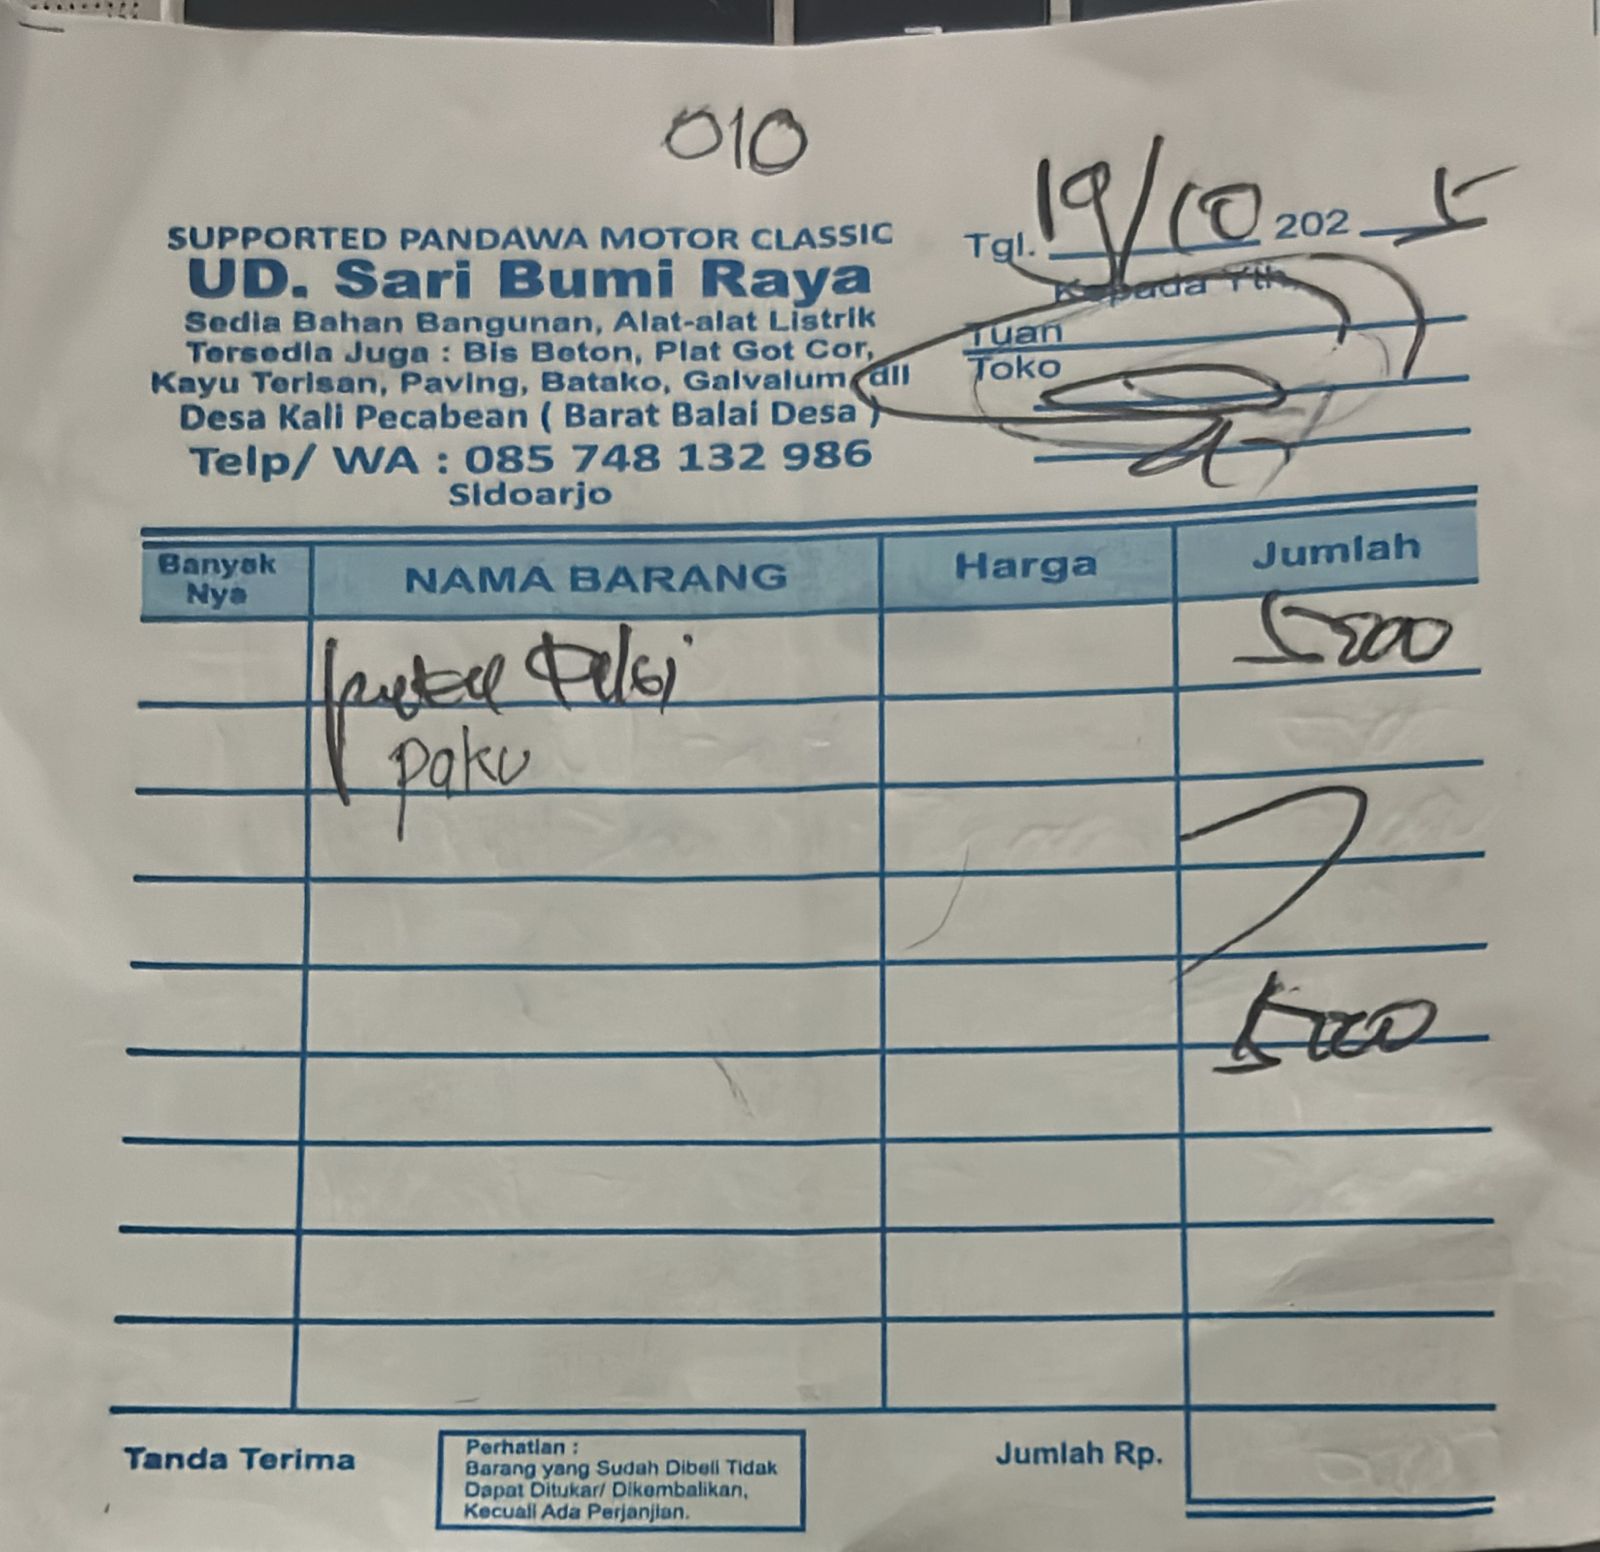 010
SUPPORTED PANDAWA MOTOR CLASSIC
UD. Sari Bumi Raya
Sedia Bahan Bangunan, Alat-alat Listrik
Tersedia Juga : Bis Beton, Plat Got Cor,
Kayu Terisan, Paving, Batako, Galvalum, dll
Desa Kali Pecabean ( Barat Balai Desa )
Telp/ WA : 085 748 132 986
Sidoarjo
Tgl. 19/10 2025
Kepada Yth.
Tuan
Toko
Banyak Nya NAMA BARANG Harga Jumlah
5000
paku
5000
Tanda Terima
Perhatian :
Barang yang Sudah Dibeli Tidak
Dapat Ditukar/ Dikembalikan,
Kecuali Ada Perjanjian.
Jumlah Rp.